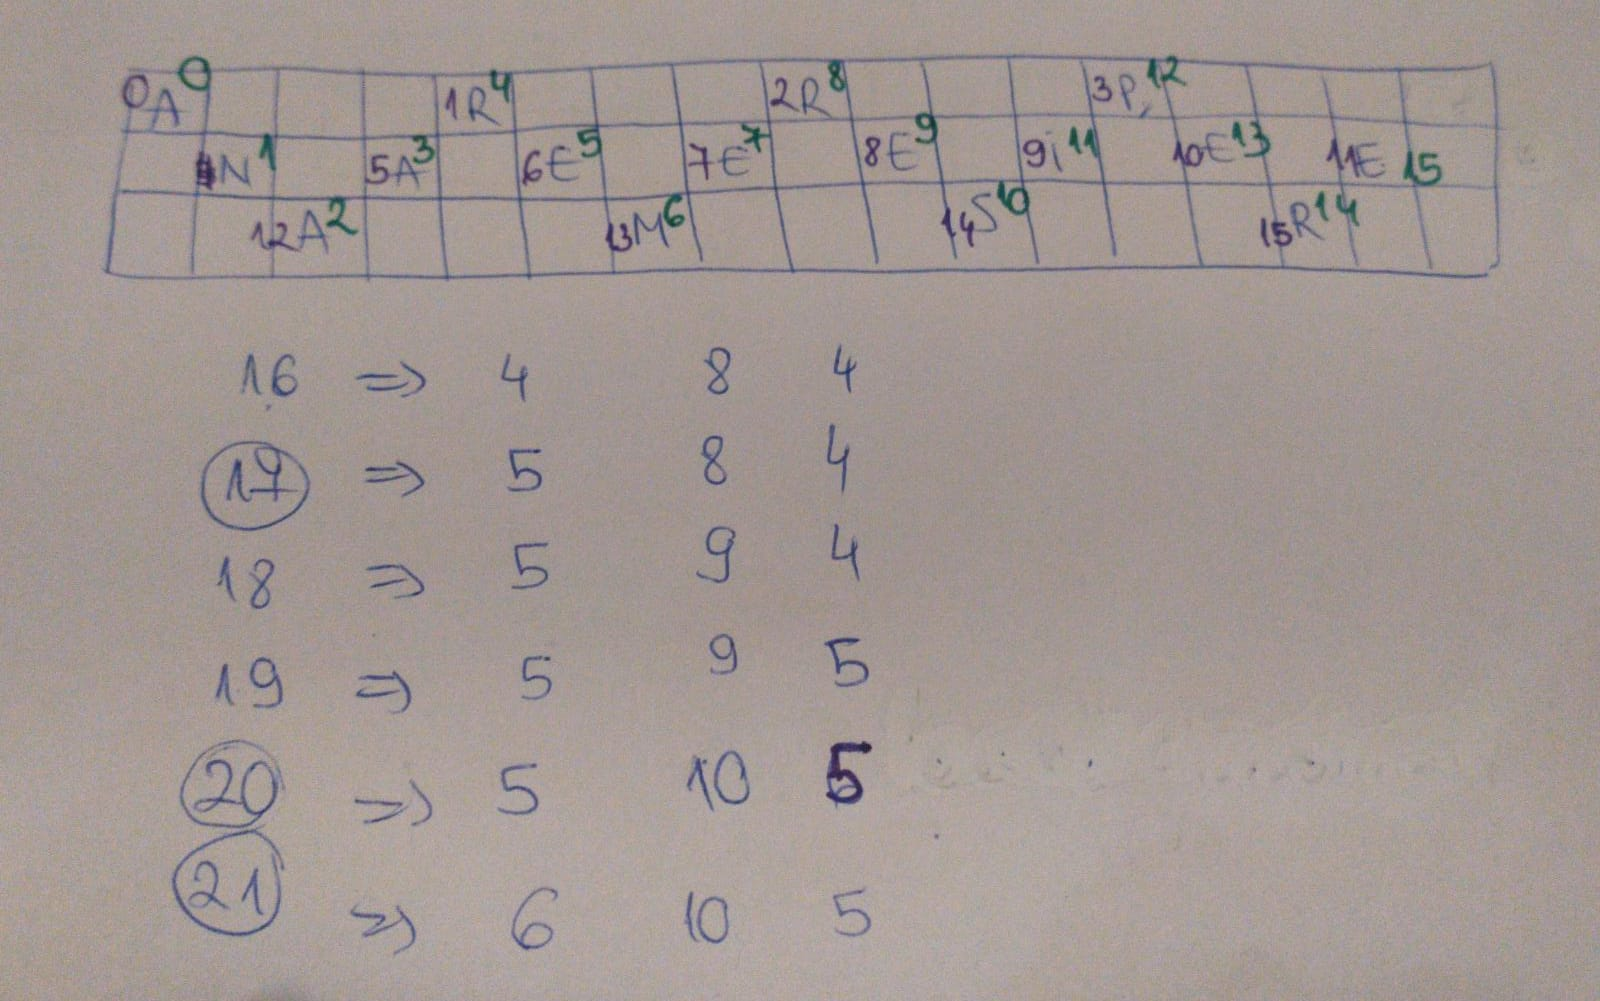 0A0 1R4 2R8 3P12
4N1 5A3 6E5 7E7 8E9 9i11 10E13 11E 15
12A2 13M6 14S10 15R14
16 => 4 8 4
17 => 5 8 4
18 => 5 9 4
19 => 5 9 5
20 => 5 10 5
21 => 6 10 5